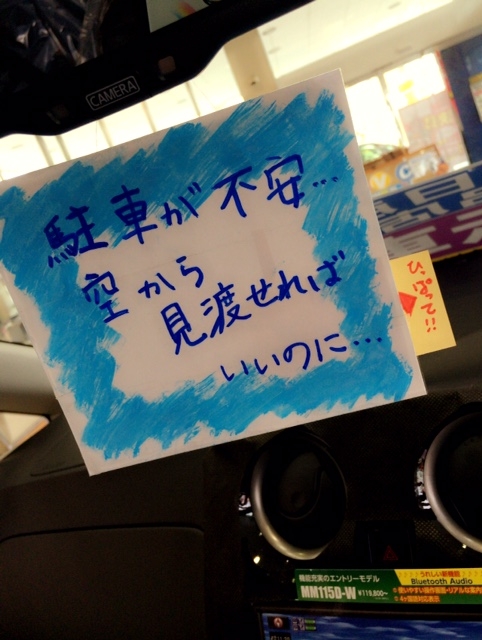 CAMERA
駐車が不安…
空から
見渡せれば
いいのに…
ひっぱって!!
機能充実のエントリーモデル
MM115D-W ¥119,800~
うれしい新機能
Bluetooth Audio